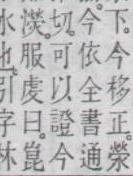 下。今移正。榮
今依全書通
切。可以證今
濙。服虔曰。崑
水也。引字林